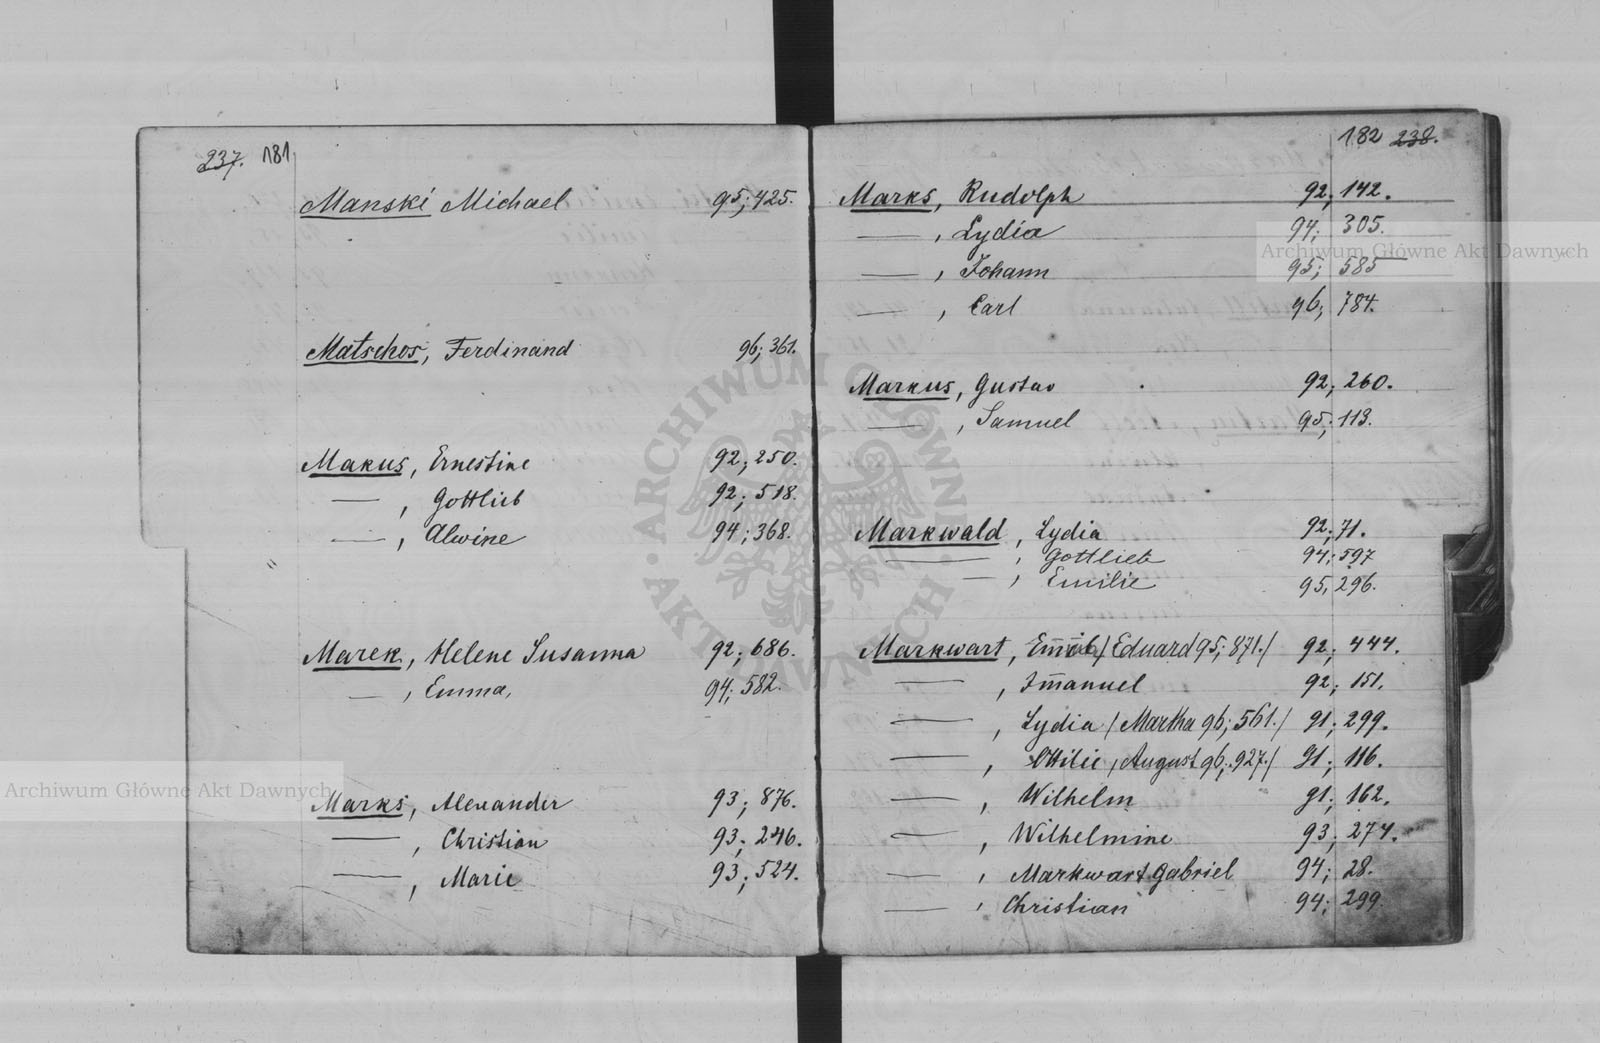 237. 181
Manski Michael 95; 425.
Matschos, Ferdinand 96; 361.
Makus, Ernestine 92; 250.
— , Gottlieb 92; 518.
— , Alwine 94; 368.
Marek, Helene Susanna 92; 686.
— , Emma, 94; 582.
Marks, Alexander 93; 876.
— , Christian 93; 246.
— , Marie 93; 524.
182 238.
Marks, Rudolph 92; 142.
— , Lydia 94; 305.
— , Johann 95; 585
— , Carl 96; 784.
Markus, Gustav 92; 260.
— , Samuel 95; 113.
Markwald, Lydia 92; 71.
— , Gottlieb 94; 597
— , Emilie 95, 296.
Markwart, /Eduard 95; 871./ 92; 444.
— , Im̄anuel 92; 151.
— , Lydia /Martha 96; 561./ 91; 299.
— , Ottilie /August 96; 927./ 91; 116.
— , Wilhelm 91; 162.
— , Wilhelmine 93; 274.
— , Markwart Gabriel 94; 28.
— , Christian 94; 299
Archiwum Główne Akt Dawnych
Archiwum Główne Akt Dawnych
ARCHIWUM GŁÓWNE AKT DAWNYCH